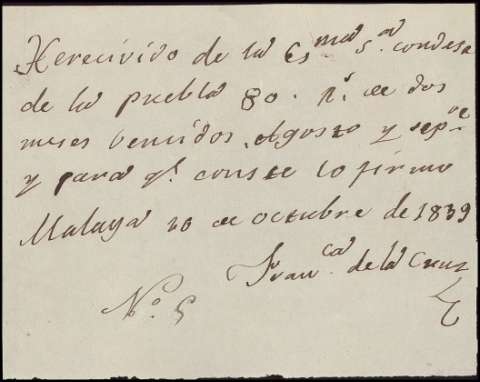 He recivido de la Esma Sa condesa
de la puebla 80 rs de dos
meses vencidos Agosto y sepre
y para qe conste lo firmo
Malaga 10 de octubre de 1839
Franca de la Cruz
No 5